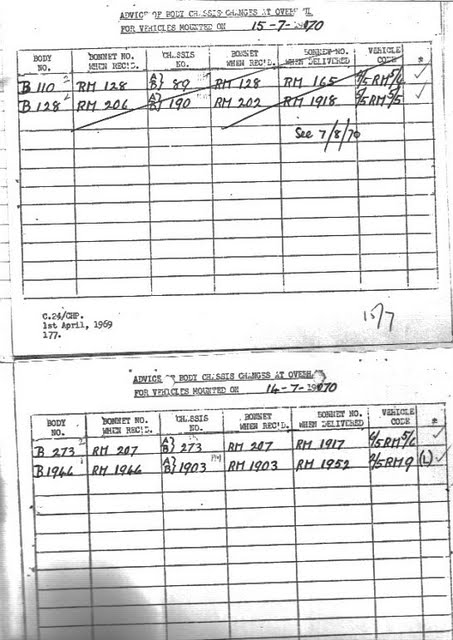 ADVICE OF BODY CHASSIS CHANGES AT OVERHAUL
FOR VEHICLES MOUNTED ON 15-7-1970
BODY NO. BONNET NO. WHEN REC'D. CHASSIS NO. BONNET WHEN REC'D. BONNET NO. WHEN DELIVERED VEHICLE CODE *
B 110 RM 128 A} B} 89 RM 128 RM 165 2/5RM5/6 ✓
B 128 RM 206 A} B} 190 RM 202 RM 1918 5/5RM5/5 ✓
See 7/8/70
C.24/CHP.
1st April, 1969
177.
15/7
ADVICE OF BODY CHASSIS CHANGES AT OVERHAUL
FOR VEHICLES MOUNTED ON 14-7-1970
BODY NO. BONNET NO. WHEN REC'D. CHASSIS NO. BONNET WHEN REC'D. BONNET NO. WHEN DELIVERED VEHICLE CODE *
B 273 RM 207 A} B} 273 RM 207 RM 1917 5/6 ✓
B 1946 RM 1946 A} B} 1903 RM 1903 RM 1952 2/5RM9 (L) ✓